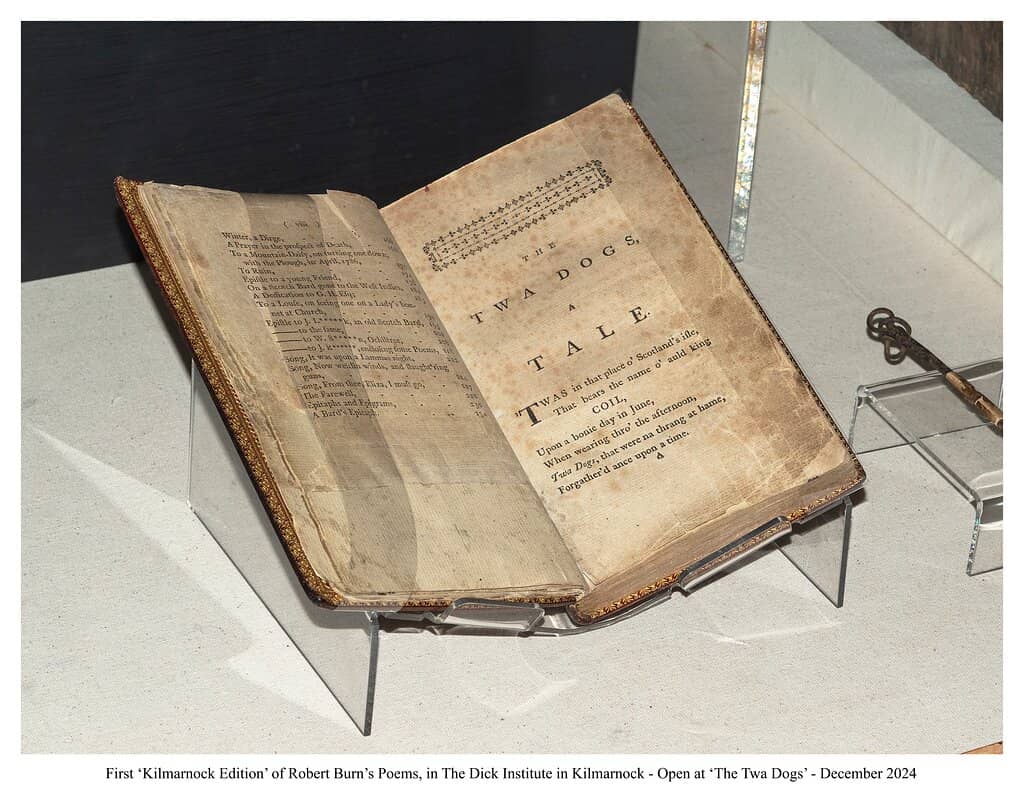 ( viii )
Winter, a Dirge,
A Prayer in the prospect of Death,
To a Mountain-Daisy, on turning one down,
with the Plough, in April, 1786,
To Ruin,
Epistle to a young Friend,
On a Scotch Bard gone to the West Indies,
A Dedication to G. H. Esq;
To a Louse, on seeing one on a Lady's bon-
net at Church,
Epistle to J. L*****k, an old Scotch Bard,
to the same,
to W. S*****n, Ochiltree,
to J. R******, enclosing some Poems,
Song, It was upon a Lammas night,
Song, Now westlin winds, and slaught'ring
guns,
Song, From thee, Eliza, I must go,
The Farewell,
Epitaphs and Epigrams,
A Bard's Epitaph,
THE
TWA DOGS,
A
TALE.
'TWAS in that place o' Scotland's isle,
That bears the name o' auld king
COIL,
Upon a bonie day in June,
When wearing thro' the afternoon,
Twa Dogs, that were na thrang at hame,
Forgather'd ance upon a time.
A
First ‘Kilmarnock Edition’ of Robert Burn’s Poems, in The Dick Institute in Kilmarnock - Open at ‘The Twa Dogs’ - December 2024